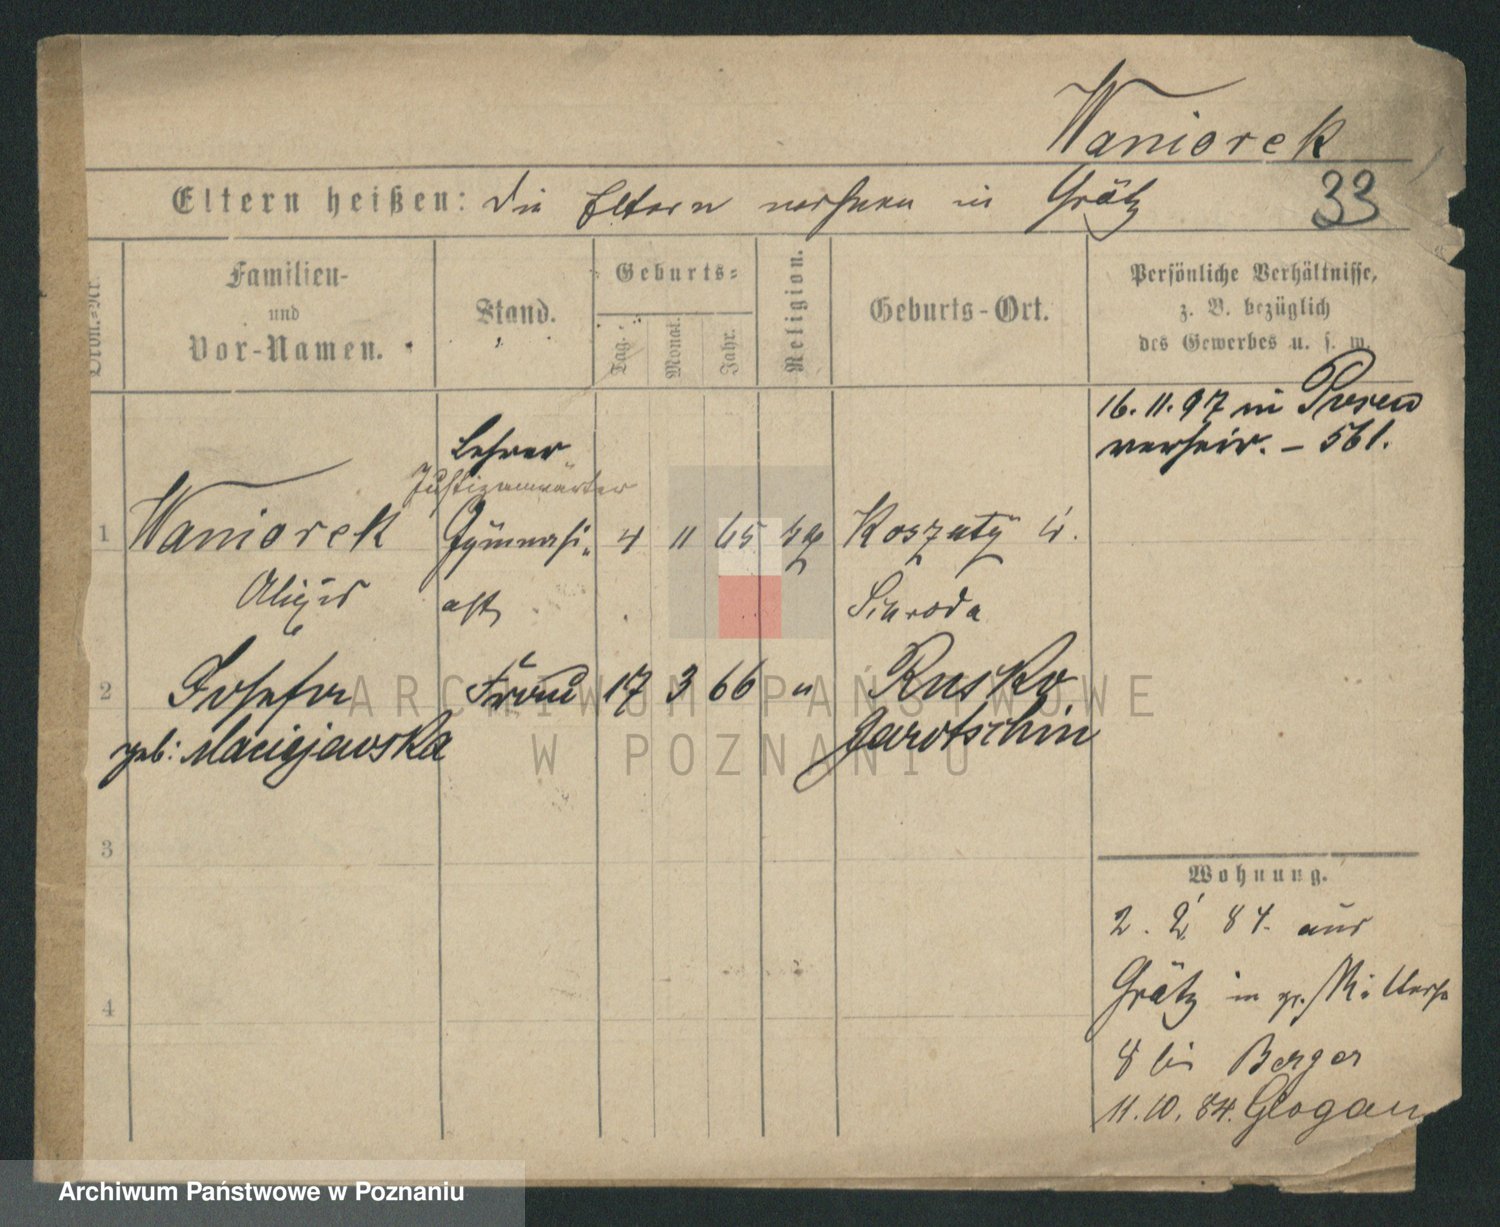 Waniorek
Eltern heißen: die Eltern wohnen in Grätz
33
Ordn.-Nr.
Familien-
und
Vor-Namen.
Stand.
Geburts-
Tag.
Monat.
Jahr.
Religion.
Geburts-Ort.
Persönliche Verhältnisse,
z. B. bezüglich
des Gewerbes u. s. w.
16. 11. 97 in Posen
verheir. – 561.
Lehrer
Justizanwärter
1 Waniorek Gymnasi- 4 11 65 Koszuty
ast Schroda
2 Josefa Frau 17 3 66 " Rusko
geb: Maciejewska Jarotschin
3
4
Wohnung.
2. 84. aus
Grätz in gr. Ritterst
8 bei Berger
11. 10. 84. Glogau
ARCHIWUM PAŃSTWOWE
W POZNANIU
Archiwum Państwowe w Poznaniu